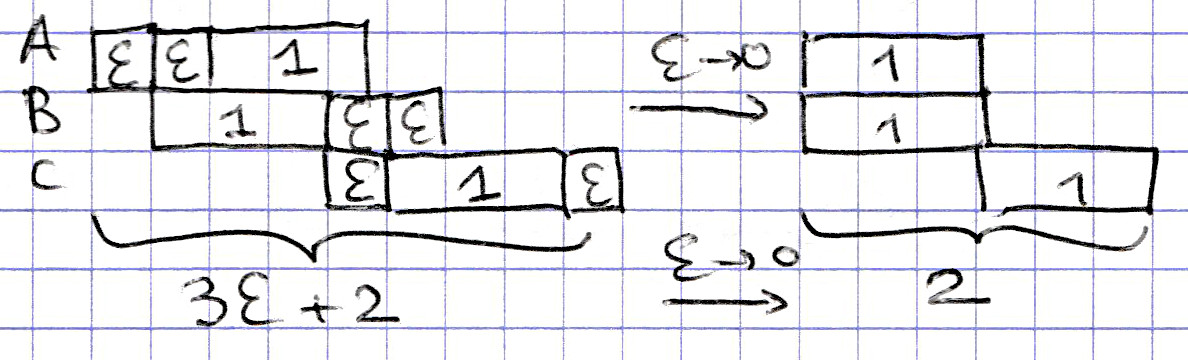 A ε ε 1
B 1 ε ε
C ε 1 ε
3ε + 2
ε→0
1
1
1
ε→0
2